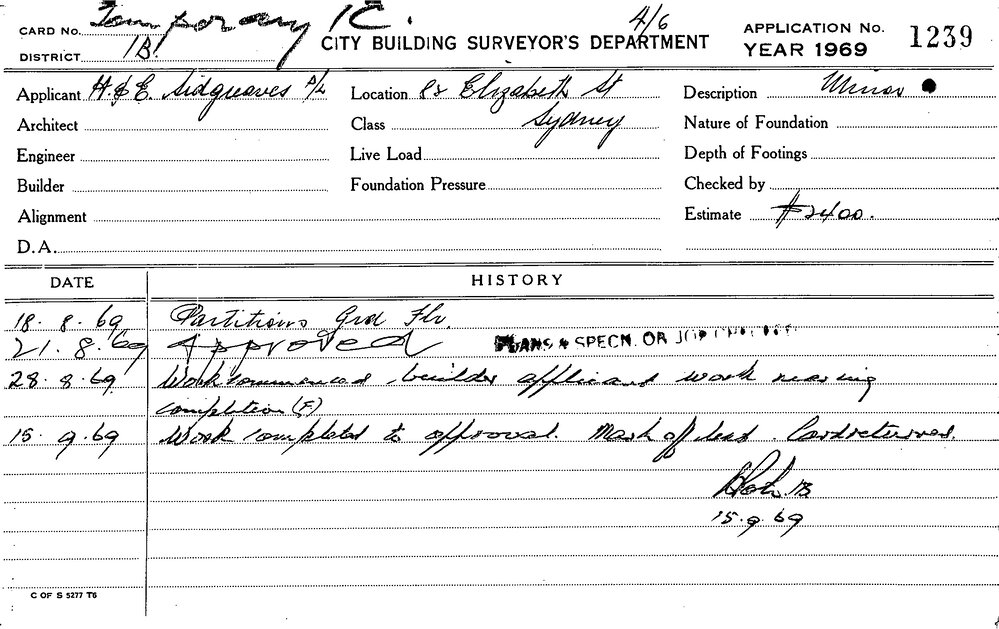 CARD No. Temporary 1C.
4/6
APPLICATION No. 1239
DISTRICT 1B
CITY BUILDING SURVEYOR'S DEPARTMENT
YEAR 1969
Applicant H. & E. Sidgreaves P/L
Location 82 Elizabeth St
Sydney
Description Minor
Architect
Class
Nature of Foundation
Engineer
Live Load
Depth of Footings
Builder
Foundation Pressure
Checked by
Alignment
Estimate $2400.
D.A.
DATE
HISTORY
18. 8. 69 Partitions Grd Flr.
21. 8. 69 Approved PLANS & SPECN. OR
28. 8. 69 Work commenced, builder applicant work nearing
completion (F)
15. 9. 69 Work completed to approval. Mark off lead. Card returned.
15. 9. 69
C OF S 5277 T6